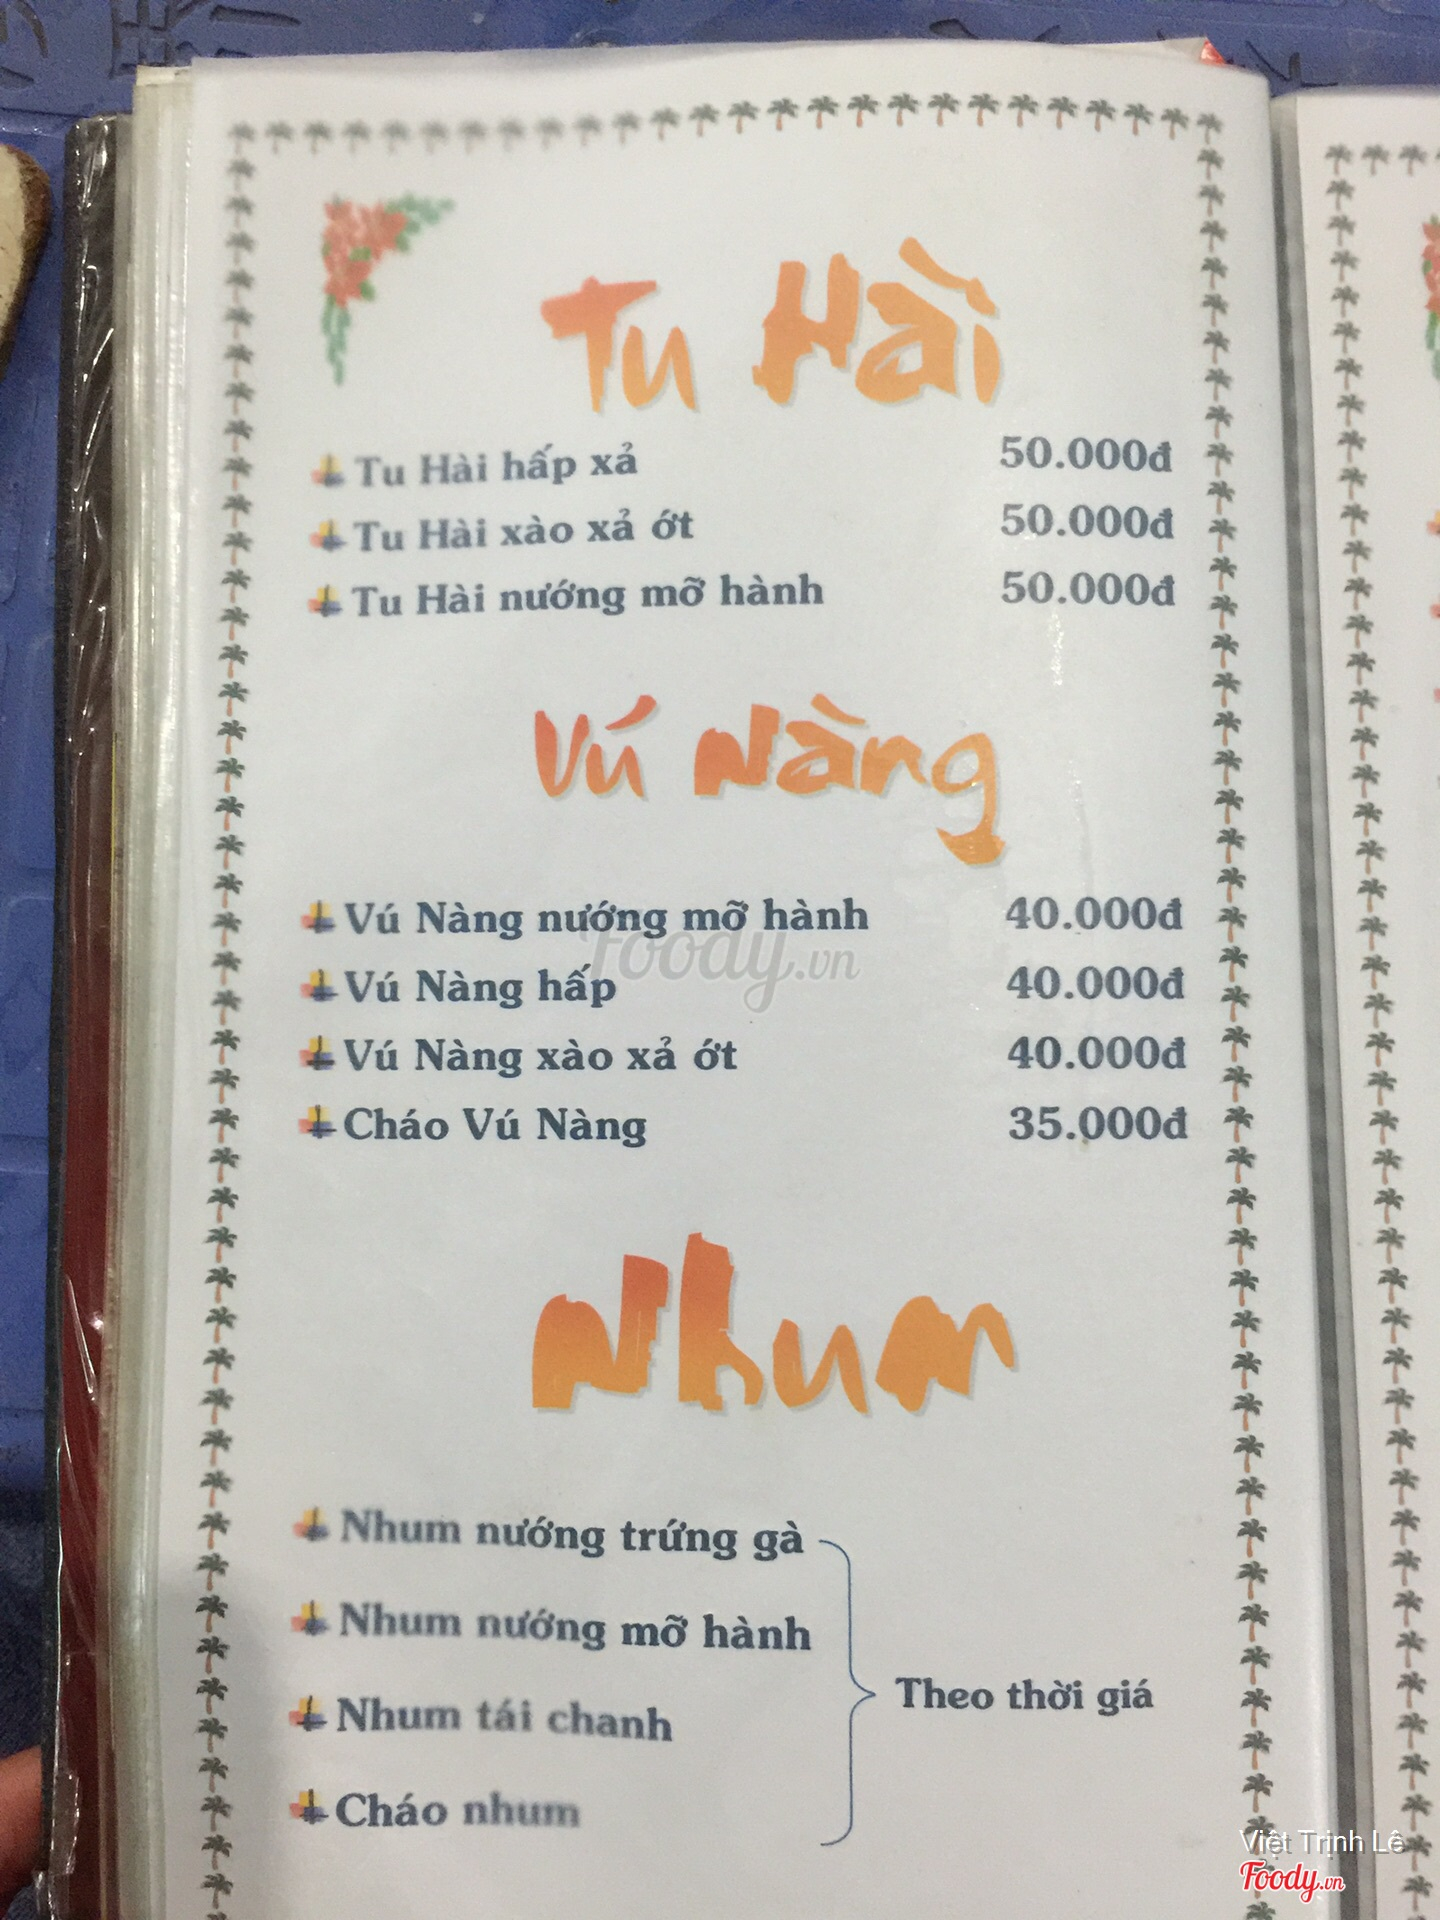 Tu Hài
Tu Hài hấp xả 50.000đ
Tu Hài xào xả ớt 50.000đ
Tu Hài nướng mỡ hành 50.000đ
Vú Nàng
Vú Nàng nướng mỡ hành 40.000đ
Foody.vn
Vú Nàng hấp 40.000đ
Vú Nàng xào xả ớt 40.000đ
Cháo Vú Nàng 35.000đ
Nhum
Nhum nướng trứng gà
Nhum nướng mỡ hành
Theo thời giá
Nhum tái chanh
Cháo nhum
Việt Trịnh Lê
Foody.vn